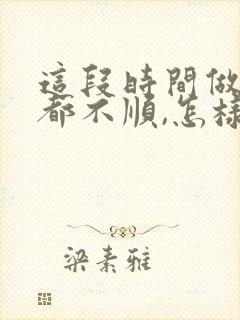 這段時間做
都不順,怎樣
梁素雅